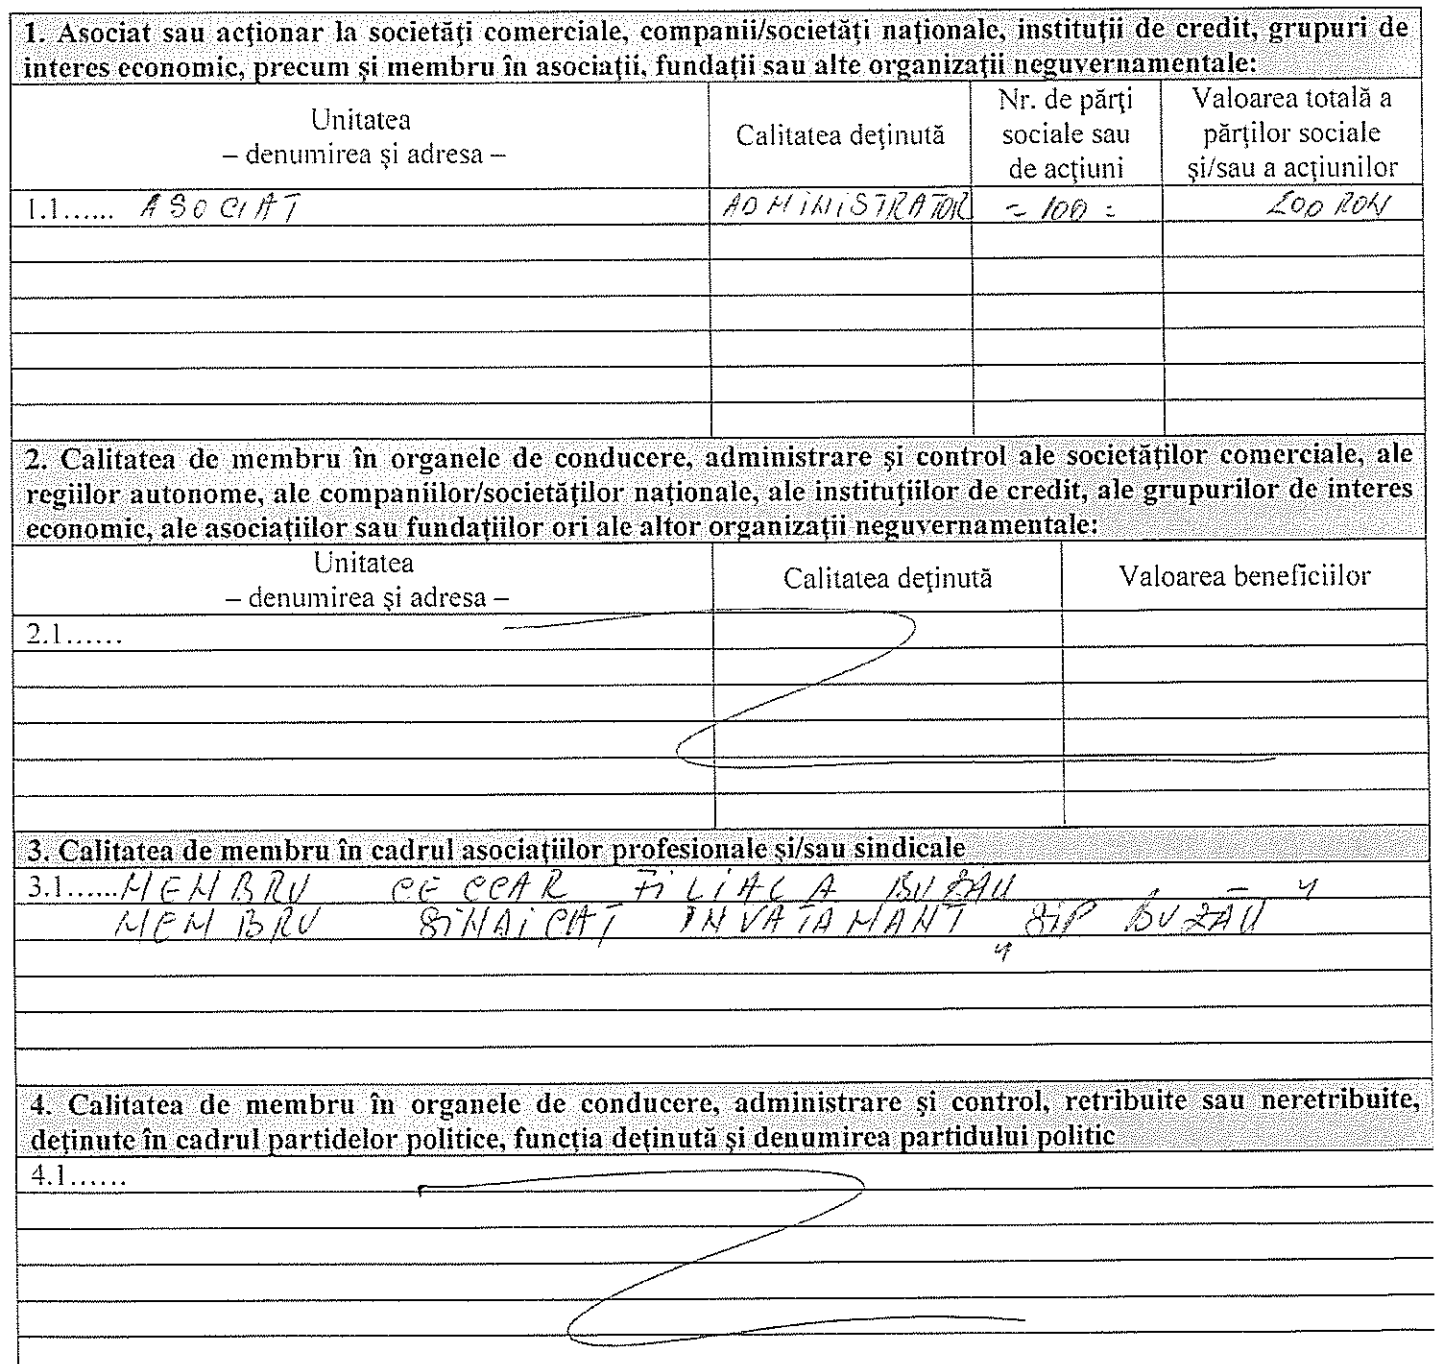 1. Asociat sau acţionar la societăţi comerciale, companii/societăţi naţionale, instituţii de credit, grupuri de
interes economic, precum şi membru în asociaţii, fundaţii sau alte organizaţii neguvernamentale:
Unitatea
– denumirea şi adresa –
Calitatea deţinută
Nr. de părţi
sociale sau
de acţiuni
Valoarea totală a
părţilor sociale
şi/sau a acţiunilor
1.1...... ASOCIAT ADMINISTRATOR = 100 = 200 RON
2. Calitatea de membru în organele de conducere, administrare şi control ale societăţilor comerciale, ale
regiilor autonome, ale companiilor/societăţilor naţionale, ale instituţiilor de credit, ale grupurilor de interes
economic, ale asociaţiilor sau fundaţiilor ori ale altor organizaţii neguvernamentale:
Unitatea
– denumirea şi adresa –
Calitatea deţinută
Valoarea beneficiilor
2.1......
3. Calitatea de membru în cadrul asociaţiilor profesionale şi/sau sindicale
3.1......MEMBRU CECCAR FILIALA BUZAU
MEMBRU SINDICAT INVATAMANT SIP BUZĂU
4. Calitatea de membru în organele de conducere, administrare şi control, retribuite sau neretribuite,
deţinute în cadrul partidelor politice, funcţia deţinută şi denumirea partidului politic
4.1......